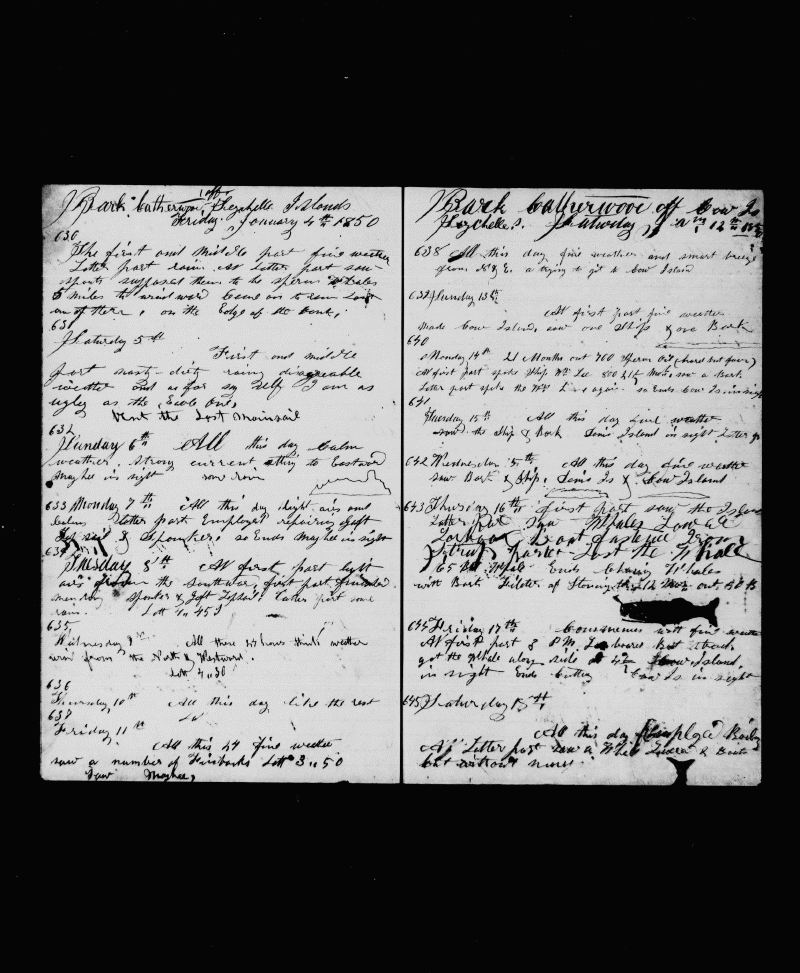 Bark Catherwood off Seychelle Islands
Friday January 4th 1850
630
The first and middle part fine weather
Latter part rain At Latter part saw
spouts supposed them to be sperm whales
5 miles to windward Came on to rain Lost
run of them, on the Edge of the bank,
631
Saturday 5th
First and middle
part nasty dirty rainy disagreable
weather and as for my self I am as
ugly as the Evile One,
bent the Last mainsail
632
Sunday 6th All this day Calm
weather, strong current setting to Eastward
Mayhee in sight some rain
633 Monday 7th All this day light airs and
Calms latter part Employed repairing
& Spanker, so Ends Mayhee in sight
634
Tuesday 8th At first part light
airs from the southward, first part finished
mending spanker & Gaft Topsail. Latter part some
rain. Latt 4,,45 S
635
Wednesday 9th All these 24 hours thick weather
wind from the North & Westward.
Latt 4,,30
636
Thursday 10th All this day like the rest
637
Friday 11th
All this 24 fine weather
saw a number of Finbacks Latt 3,,50
Saw Mayhee,
Bark Catherwood off Cow Is
Seychelles. Saturday Jan 12th 1850
638 All this day fine weather and smart breeze
from N & E. a trying to get to Cow Island
639 Sunday 13th
At first part fine weather
made Cow Island, saw one Ship & one Bark
640
Monday 14th 21 Months out 700 Sperm Oil (hard but fair)
At first part spoke Ship Wm Lee 800 21½ Mos, saw a Bark,
Latter part spoke the Wm Lee again. so Ends Cow Is. in sight
641
Tuesday 15th All this day fine weather
saw the Ship & Bark Denis Island in sight Latter pt
642 Wednesday 15th All this day fine weather
saw Bark & Ship, Denis Is & Cow Island
643 Thursday 16th first part saw the Island
Latter Part Saw Whales Lowered
Larboard Boat fastened Iron
Drew Lost the Whale
65 Bbl Whale Ends Chasing Whales
with Bark of 12 Mos out
644 Friday 17th Commences with fine weather
At first part 8 P.M. Larboard Boat struck,
got the Whale along side at Cow Island,
in sight Ends Cutting Cow Is in sight
645 Saturday 18th
All this day Employed Boiling
At Latter part saw a & Boats
but without